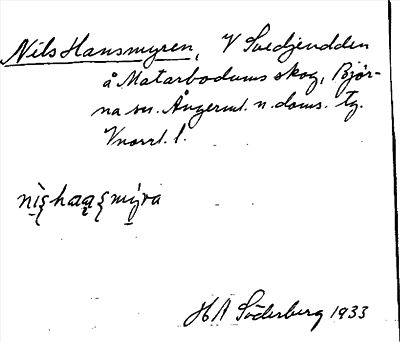 Nils Hansmyren, V Svedjeudden
å Matarbodums skog, Björ-
na sn. Ångerml. n. doms. tg.
Vnorrl. l.
H A Söderberg 1933